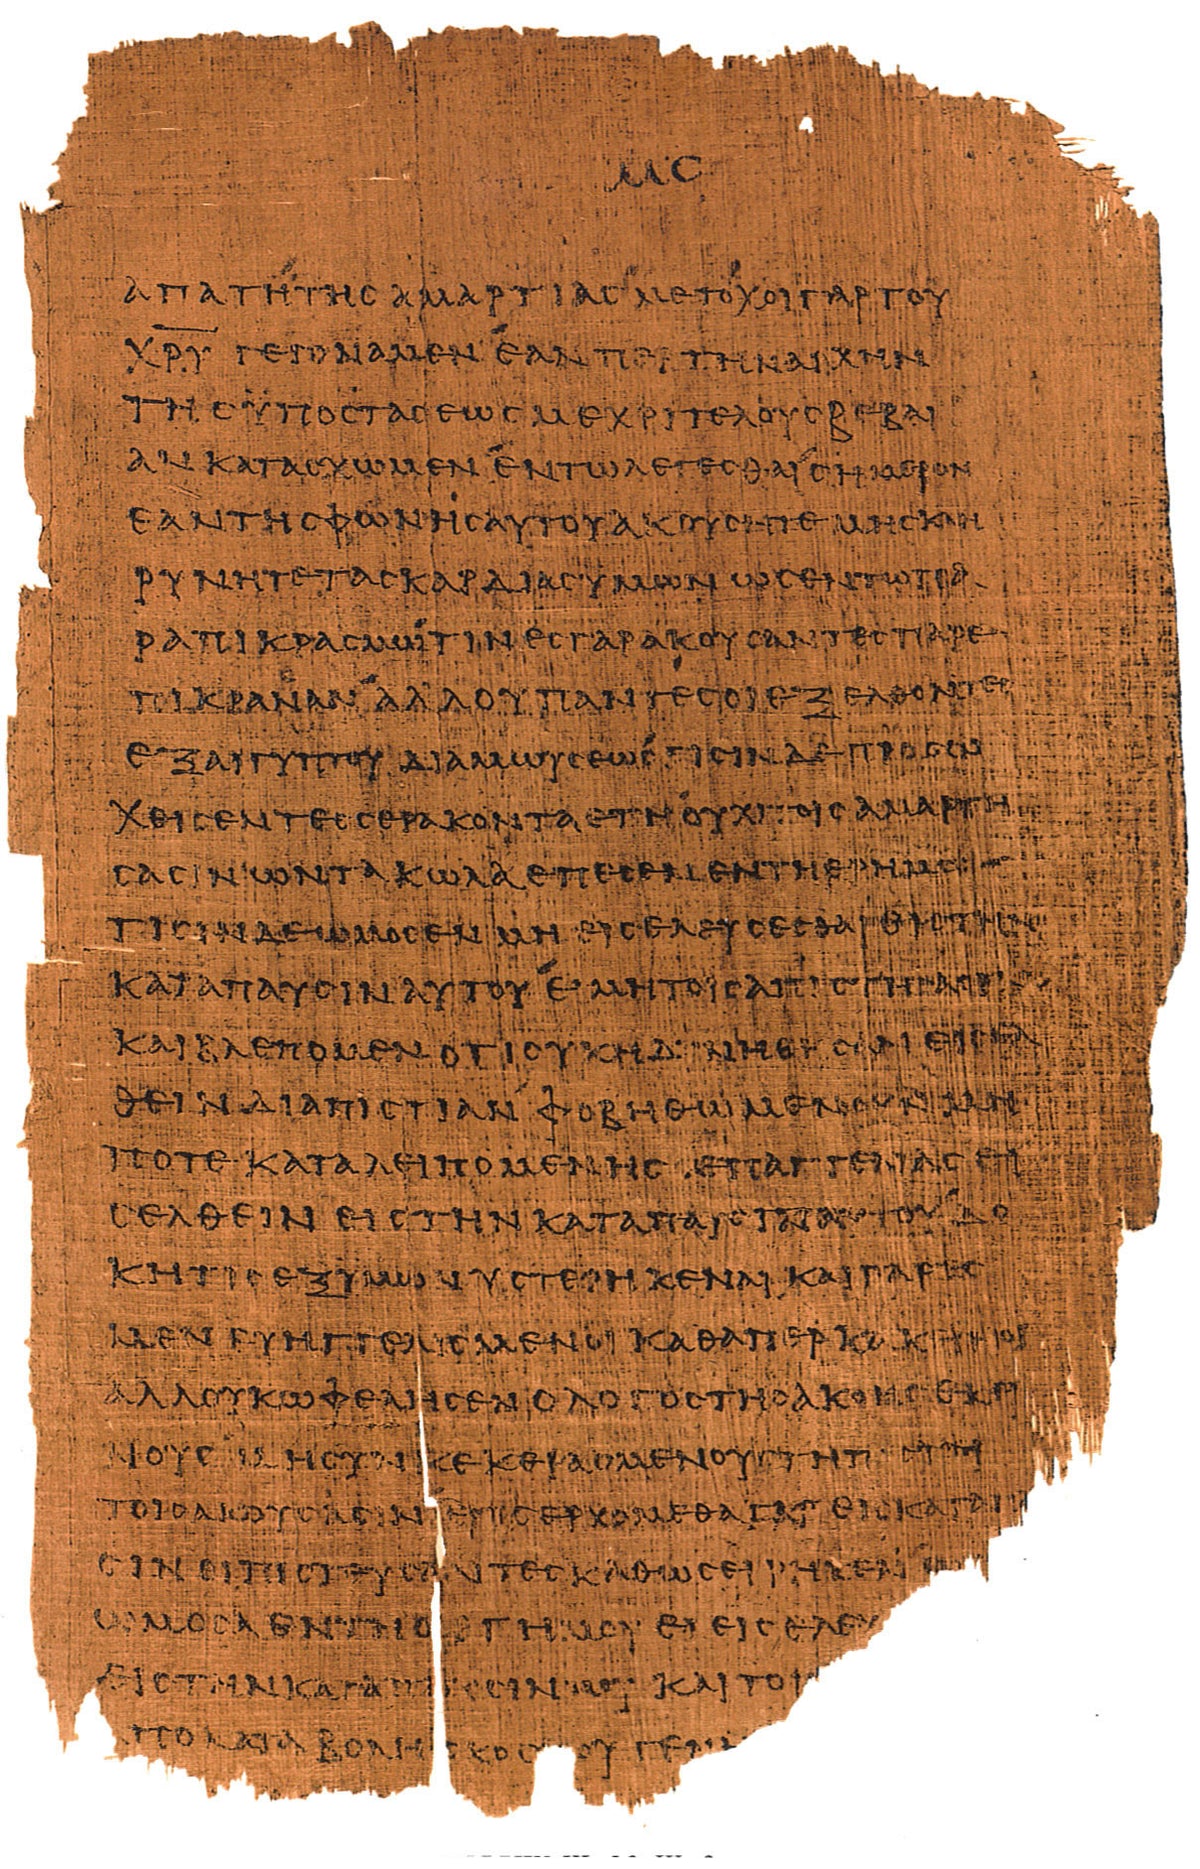 ΜϚ
ΑΠΑΤΗΤΗϹΑΜΑΡΤΙΑϹΜΕΤΟΧΟΙΓΑΡΤΟΥ
ΧΡΥ ΓΕΓΟΝΑΜΕΝ ΕΑΝΠΕΡΤΗΝΑΡΧΗΝ
ΤΗϹΥΠΟϹΤΑϹΕΩϹΜΕΧΡΙΤΕΛΟΥϹΒΕΒΑΙ
ΑΝΚΑΤΑϹΧΩΜΕΝ ΕΝΤΩΛΕΓΕϹΘΑΙϹΗΜΕΡΟΝ
ΕΑΝΤΗϹΦΩΝΗϹΑΥΤΟΥΑΚΟΥϹΗΤΕ ΜΗϹΚΛΗ
ΡΥΝΗΤΕΤΑϹΚΑΡΔΙΑϹΥΜΩΝ ΩϹΕΝΤΩΠΑ
ΡΑΠΙΚΡΑϹΜΩΤΙΝΕϹΓΑΡΑΚΟΥϹΑΝΤΕϹΠΑΡΕ
ΠΙΚΡΑΝΑΝ ΑΛΛΟΥΠΑΝΤΕϹΟΙΕΞΕΛΘΟΝΤΕϹ
ΕΞΑΙΓΥΠΤΟΥ ΔΙΑΜΩΥϹΕΩϹ ΤΙϹΙΝΔΕΠΡΟϹΩ
ΧΘΙϹΕΝΤΕϹϹΕΡΑΚΟΝΤΑΕΤΗ ΟΥΧΙΤΟΙϹΑΜΑΡΤΗ
ϹΑϹΙΝΩΝΤΑΚΩΛΑΕΠΕϹΕΝΕΝΤΗΕΡΗΜΩ
ΤΙϹΙΝΔΕΩΜΟϹΕΝ ΜΗ ΕΙϹΕΛΕΥϹΕϹΘΑΙ ΕΙϹΤΗΝ
ΚΑΤΑΠΑΥϹΙΝΑΥΤΟΥ ΕΙΜΗΤΟΙϹΑΠΙϹΤΗϹΑϹΙ
ΚΑΙΒΛΕΠΟΜΕΝΟΤΙΟΥΚΗΔΥΝΗΘΗϹΑΝ ΕΙϹΕΛ
ΘΕΙΝΔΙΑΠΙϹΤΙΑΝ ΦΟΒΗΘΩΜΕΝΟΥΝ ΜΗ
ΠΟΤΕ ΚΑΤΑΛΕΙΠΟΜΕΝΗϹ ΕΠΑΓΓΕΛΙΑϹΕΙ
ϹΕΛΘΕΙΝ ΕΙϹΤΗΝΚΑΤΑΠΑΥϹΙΝΑΥΤΟΥΔΟ
ΚΗΤΙϹΕΞΥΜΩΝΥϹΤΕΡΗΚΕΝΑΙ ΚΑΙΓΑΡΕϹ
ΜΕΝ ΕΥΗΓΓΕΛΙϹΜΕΝΟΙ ΚΑΘΑΠΕΡΚΑΚΕΙΝΟΙ
ΑΛΛΟΥΚΩΦΕΛΗϹΕΝΟΛΟΓΟϹΤΗϹΑΚΟΗϹΕΚΕΙ
ΝΟΥϹ ΜΗϹΥΝΚΕΚΕΡΑϹΜΕΝΟΥϹΤΗΠΙϹΤΕΙ
ΤΟΙϹΑΚΟΥϹΑϹΙΝ ΕΙϹΕΡΧΟΜΕΘΑΓΑΡ ΕΙϹΚΑΤΑΠΑΥ
ϹΙΝΟΙΠΙϹΤΕΥϹΑΝΤΕϹΚΑΘΩϹΕΙΡΗΚΕΝ
ΩΜΟϹΑΕΝΤΗΟΡΓΗΜΟΥ ΕΙΕΙϹΕΛΕΥ
ΕΙϹΤΗΝΚΑΤΑΠΑΥϹΙΝΜΟΥ ΚΑΙΤΟΙ
ΑΠΟΚΑΤΑΒΟΛΗϹΚΟϹΜΟΥ ΓΕΝΗ